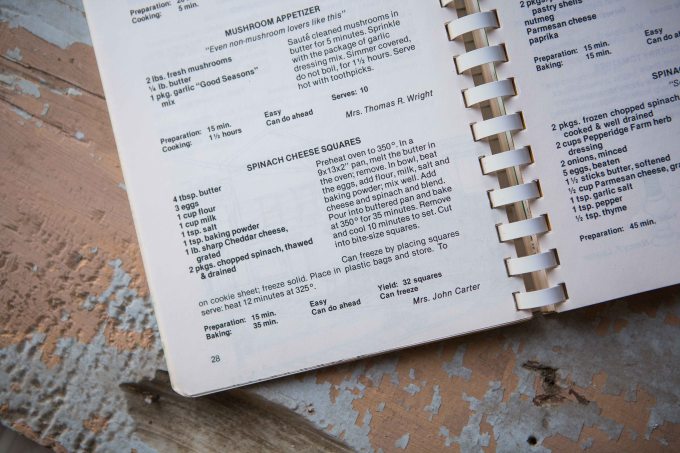 Preparation:
Cooking: 5 min.
MUSHROOM APPETIZER
"Even non-mushroom lovers like this"
2 lbs. fresh mushrooms
¼ lb. butter
1 pkg. garlic "Good Seasons"
mix
Sauté cleaned mushrooms in
butter for 5 minutes. Sprinkle
with the package of garlic
dressing mix. Simmer covered,
do not boil, for 1½ hours. Serve
hot with toothpicks.
Serves: 10
Preparation: 15 min.
Cooking: 1½ hours
Easy
Can do ahead
Mrs. Thomas R. Wright
SPINACH CHEESE SQUARES
4 tbsp. butter
3 eggs
1 cup flour
1 cup milk
1 tsp. salt
1 tsp. baking powder
1 lb. sharp Cheddar cheese,
grated
2 pkgs. chopped spinach, thawed
& drained
Preheat oven to 350°. In a
9x13x2" pan, melt the butter in
the oven; remove. In bowl, beat
the eggs, add flour, milk, salt and
baking powder; mix well. Add
cheese and spinach and blend.
Pour into buttered pan and bake
at 350° for 35 minutes. Remove
and cool 10 minutes to set. Cut
into bite-size squares.
Can freeze by placing squares
on cookie sheet; freeze solid. Place in plastic bags and store. To
serve: heat 12 minutes at 325°.
Yield: 32 squares
Preparation: 15 min.
Baking: 35 min.
Easy
Can do ahead
Can freeze
Mrs. John Carter
28
pastry shells
nutmeg
Parmesan cheese
paprika
Preparation: 15 min.
Baking: 15 min.
Easy
Can do
SPINA
2 pkgs. frozen chopped spinach
cooked & well drained
2 cups Pepperidge Farm herb
dressing
2 onions, minced
5 eggs, beaten
1½ sticks butter, softened
½ cup Parmesan cheese,
1 tsp. garlic salt
1 tsp. pepper
½ tsp. thyme
Preparation: 45 min.